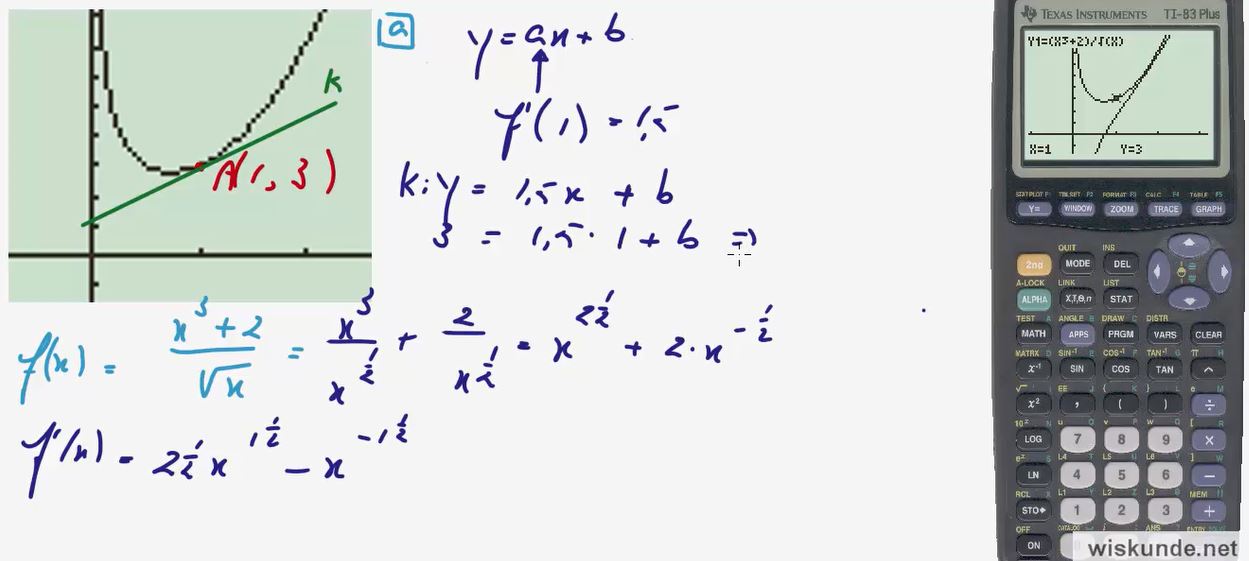 a
y = ax + b
f'(1) = 1,5
k: y = 1,5x + b
3 = 1,5 · 1 + b ⇒
k
A(1, 3)
f(x) = (x³ + 2)/√x = x³/x^½ + 2/x^½ = x^2½ + 2 · x^-½
f'(x) = 2½ x^1½ − x^-1½
TEXAS INSTRUMENTS TI-83 Plus
Y1=(X^3+2)/√(X)
X=1 Y=3
STAT PLOT F1 TBLSET F2 FORMAT F3 CALC F4 TABLE F5
Y= WINDOW ZOOM TRACE GRAPH
QUIT INS
2nd MODE DEL
A-LOCK LINK LIST
ALPHA X,T,Θ,n STAT
TEST A ANGLE B DRAW C DISTR
MATH APPS PRGM VARS CLEAR
MATRX D SIN⁻¹ E COS⁻¹ F TAN⁻¹ G π H
x⁻¹ SIN COS TAN ^
√ I EE J { K } L e M
x² , ( ) ÷
10ˣ N u O v P w Q [ R
LOG 7 8 9 ×
eˣ S L4 T L5 U L6 V ] W
LN 4 5 6 −
RCL X L1 Y L2 Z L3 θ MEM "
STO▶ 1 2 3 +
OFF CATALOG
ON
wiskunde.net